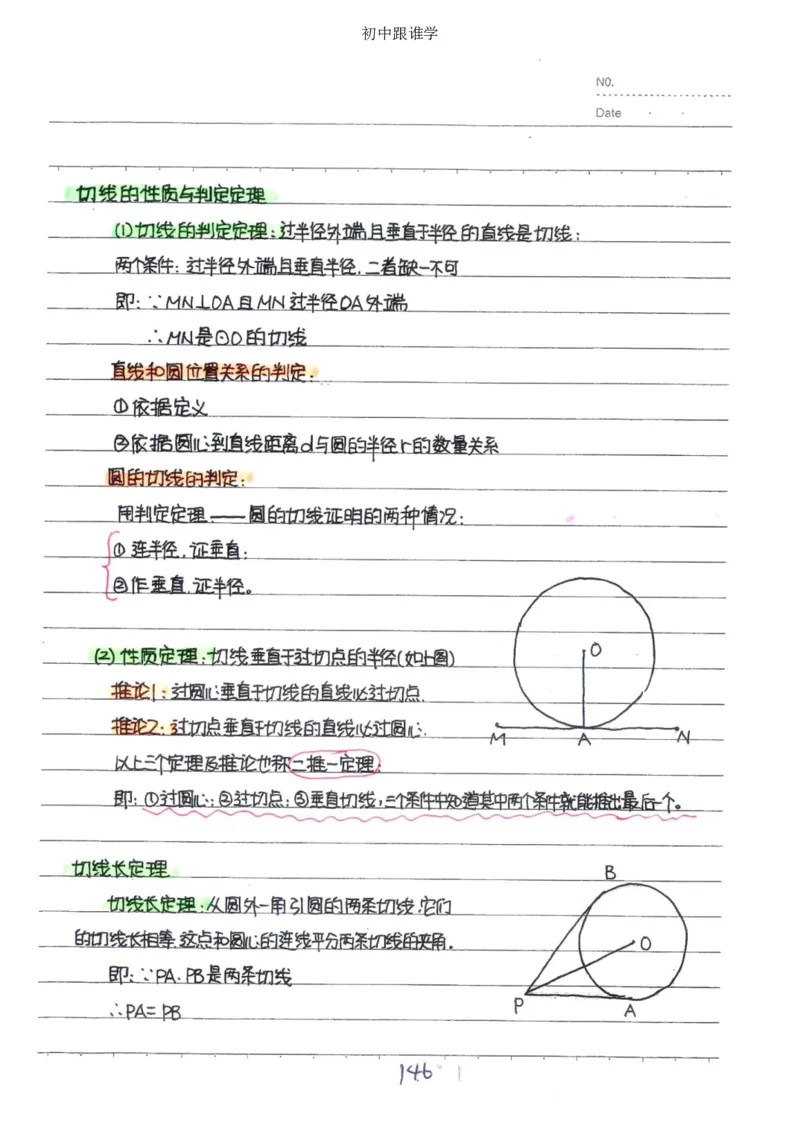 初中跟谁学
NO.
Date
切线的性质与判定定理
(1)切线的判定定理:过半径外端且垂直于半径的直线是切线;
两个条件:过半径外端且垂直半径,二者缺一不可
即:∵MN⊥OA且MN过半径OA外端
∴MN是⊙O的切线
直线和圆位置关系的判定:
①依据定义
②依据圆心到直线距离d与圆的半径r的数量关系
圆的切线的判定:
用判定定理——圆的切线证明的两种情况:
①连半径,证垂直;
②作垂直,证半径。
(2)性质定理:切线垂直于过切点的半径(如上图)
推论1:过圆心垂直于切线的直线必过切点.
推论2:过切点垂直于切线的直线必过圆心.
以上三个定理及推论也称二推一定理:
即:①过圆心;②过切点;③垂直切线,三个条件中知道其中两个条件就能推出最后一个。
O
M A N
切线长定理
切线长定理:从圆外一角引圆的两条切线,它们
的切线长相等,这点和圆心的连线平分两条切线的夹角.
即:∵PA.PB是两条切线
∴PA=PB
B
O
P A
146